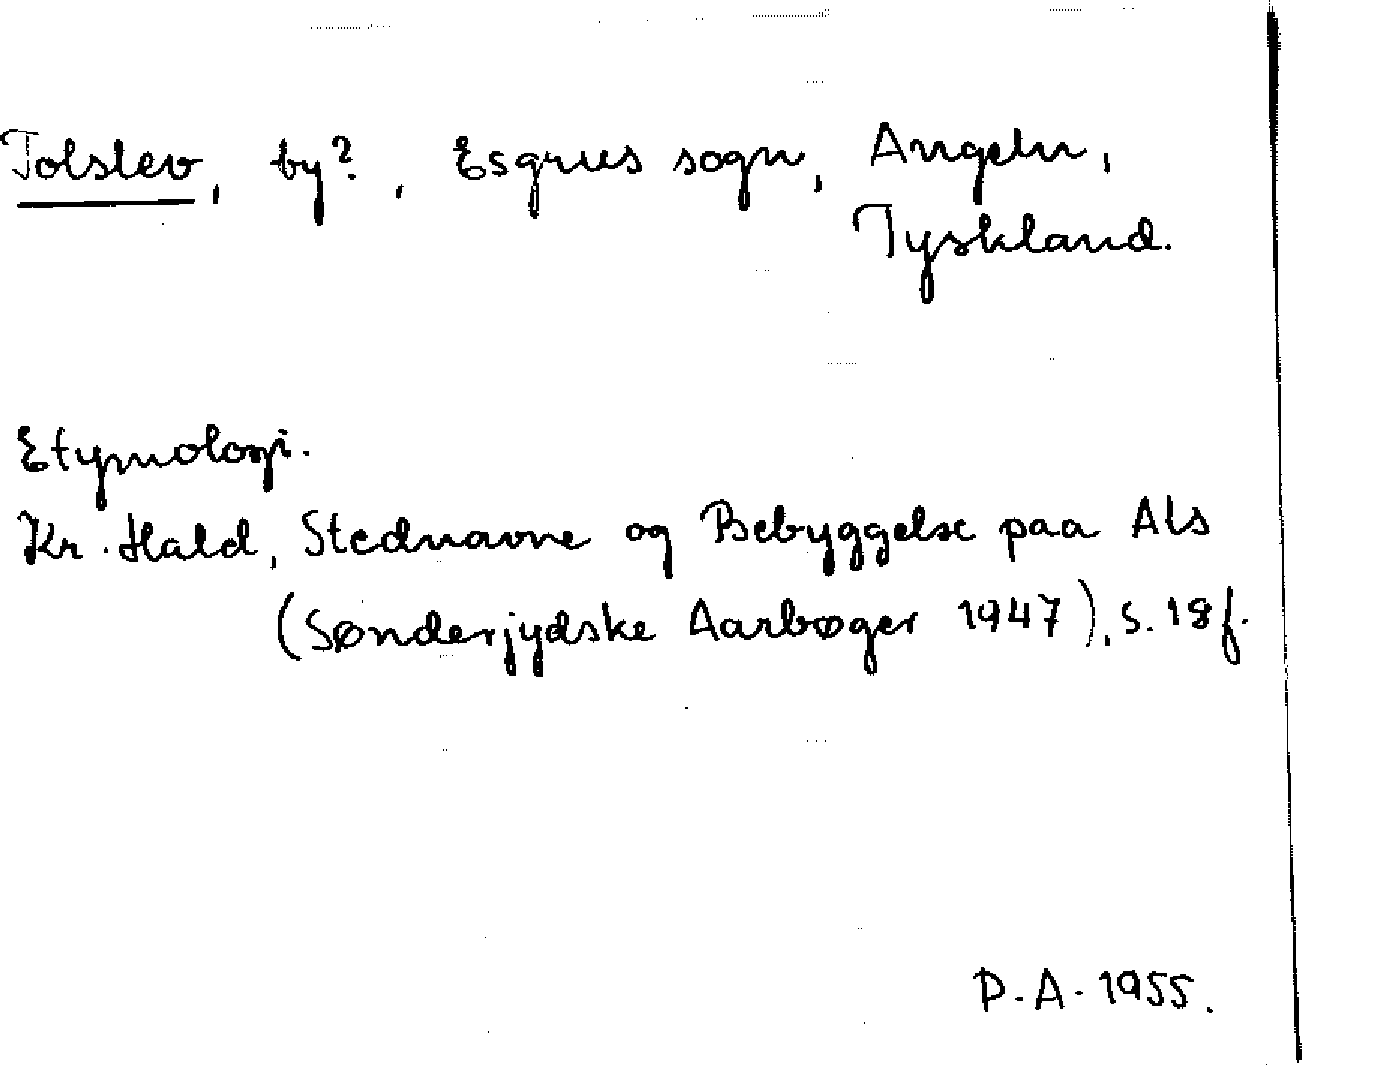 Tolslev, by?, Esgrus sogn, Angeln,
Tyskland.
Etymologi.
Kr. Hald, Stednavne og Bebyggelse paa Als
(Sønderjydske Aarbøger 1947), s. 18 f.
P.A. 1955.